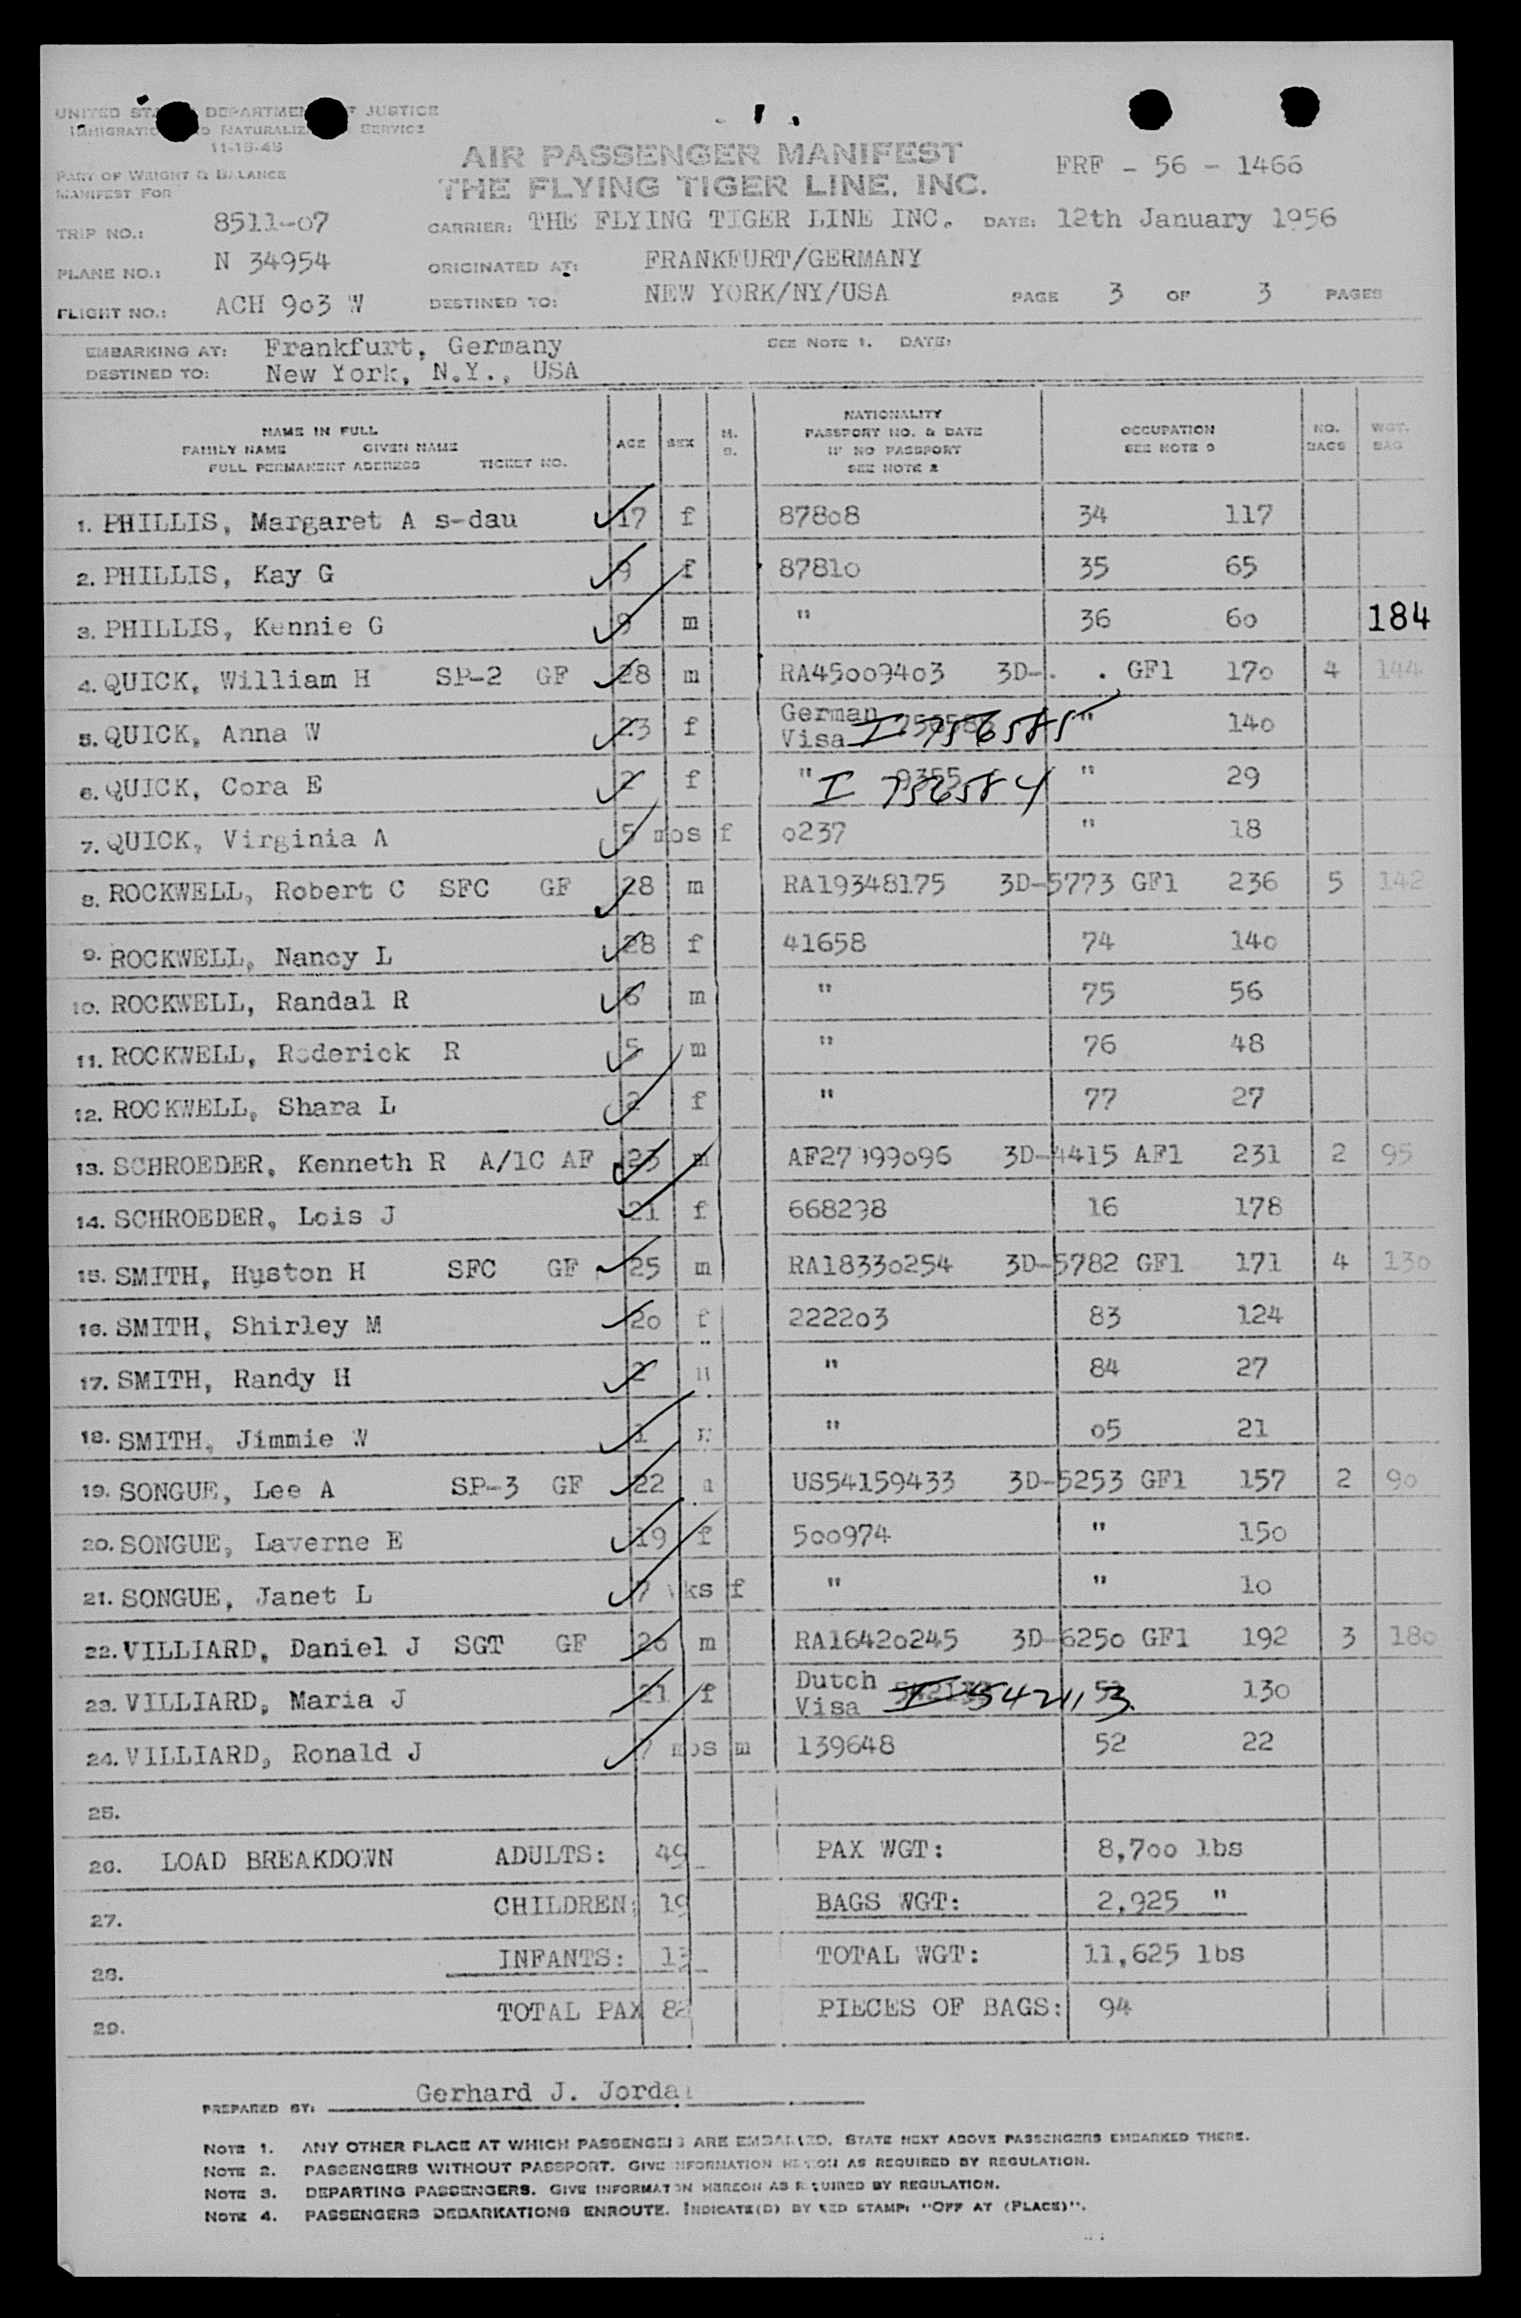 UNITED STA DEPARTMEN T JUSTICE
IMMIGRATIO D NATURALIZ SERVICE
11-15-45
PART OF WEIGHT & BALANCE
MANIFEST FOR
AIR PASSENGER MANIFEST
THE FLYING TIGER LINE, INC.
FRF - 56 - 1466
TRIP NO.: 8511-07 CARRIER: THE FLYING TIGER LINE INC. DATE: 12th January 1956
PLANE NO.: N 34954 ORIGINATED AT: FRANKFURT/GERMANY
FLIGHT NO.: ACH 903 W DESTINED TO: NEW YORK/NY/USA PAGE 3 OF 3 PAGES
EMBARKING AT: Frankfurt, Germany SEE NOTE 1. DATE:
DESTINED TO: New York, N.Y., USA
NAME IN FULL
FAMILY NAME GIVEN NAME
FULL PERMANENT ADDRESS TICKET NO.
AGE SEX M. S.
NATIONALITY
PASSPORT NO. & DATE
IF NO PASSPORT
SEE NOTE 2
OCCUPATION
SEE NOTE 3
NO. BAGS
WGT. BAG
1. PHILLIS, Margaret A s-dau 17 f 87808 34 117
2. PHILLIS, Kay G 9 f 87810 35 65
3. PHILLIS, Kennie G 9 m " 36 60 184
4. QUICK, William H SP-2 GF 28 m RA45009403 3D- GF1 170 4 144
5. QUICK, Anna W 23 f German Visa I 756585 " 140
6. QUICK, Cora E 2 f " I 756584 " 29
7. QUICK, Virginia A 5 mos f 0237 " 18
8. ROCKWELL, Robert C SFC GF 28 m RA19348175 3D-5773 GF1 236 5 142
9. ROCKWELL, Nancy L 28 f 41658 74 140
10. ROCKWELL, Randal R 6 m " 75 56
11. ROCKWELL, Roderick R 5 m " 76 48
12. ROCKWELL, Shara L 2 f " 77 27
13. SCHROEDER, Kenneth R A/1C AF 23 m AF27999096 3D-4415 AF1 231 2 95
14. SCHROEDER, Lois J 21 f 668298 16 178
15. SMITH, Hyston H SFC GF 25 m RA18330254 3D-5782 GF1 171 4 130
16. SMITH, Shirley M 20 f 222203 83 124
17. SMITH, Randy H 2 " 84 27
18. SMITH, Jimmie W 1 " 05 21
19. SONGUE, Lee A SP-3 GF 22 US54159433 3D-5253 GF1 157 2 90
20. SONGUE, Laverne E 19 f 500974 " 150
21. SONGUE, Janet L 7 wks f " " 10
22. VILLIARD, Daniel J SGT GF 26 m RA16420245 3D-6250 GF1 192 3 180
23. VILLIARD, Maria J 21 f Dutch Visa I 542113 53 130
24. VILLIARD, Ronald J 7 mos m 139648 52 22
25.
26. LOAD BREAKDOWN ADULTS: 49 PAX WGT: 8,700 lbs
27. CHILDREN: 19 BAGS WGT: 2,925 "
28. INFANTS: 13 TOTAL WGT: 11,625 lbs
29. TOTAL PAX 82 PIECES OF BAGS: 94
PREPARED BY: Gerhard J. Jorda
NOTE 1. ANY OTHER PLACE AT WHICH PASSENGERS ARE EMBARKED. STATE NEXT ABOVE PASSENGERS EMBARKED THERE.
NOTE 2. PASSENGERS WITHOUT PASSPORT. GIVE INFORMATION HEREON AS REQUIRED BY REGULATION.
NOTE 3. DEPARTING PASSENGERS. GIVE INFORMATION HEREON AS REQUIRED BY REGULATION.
NOTE 4. PASSENGERS DEBARKATIONS ENROUTE. INDICATE(D) BY RED STAMP: "OFF AT (PLACE)".